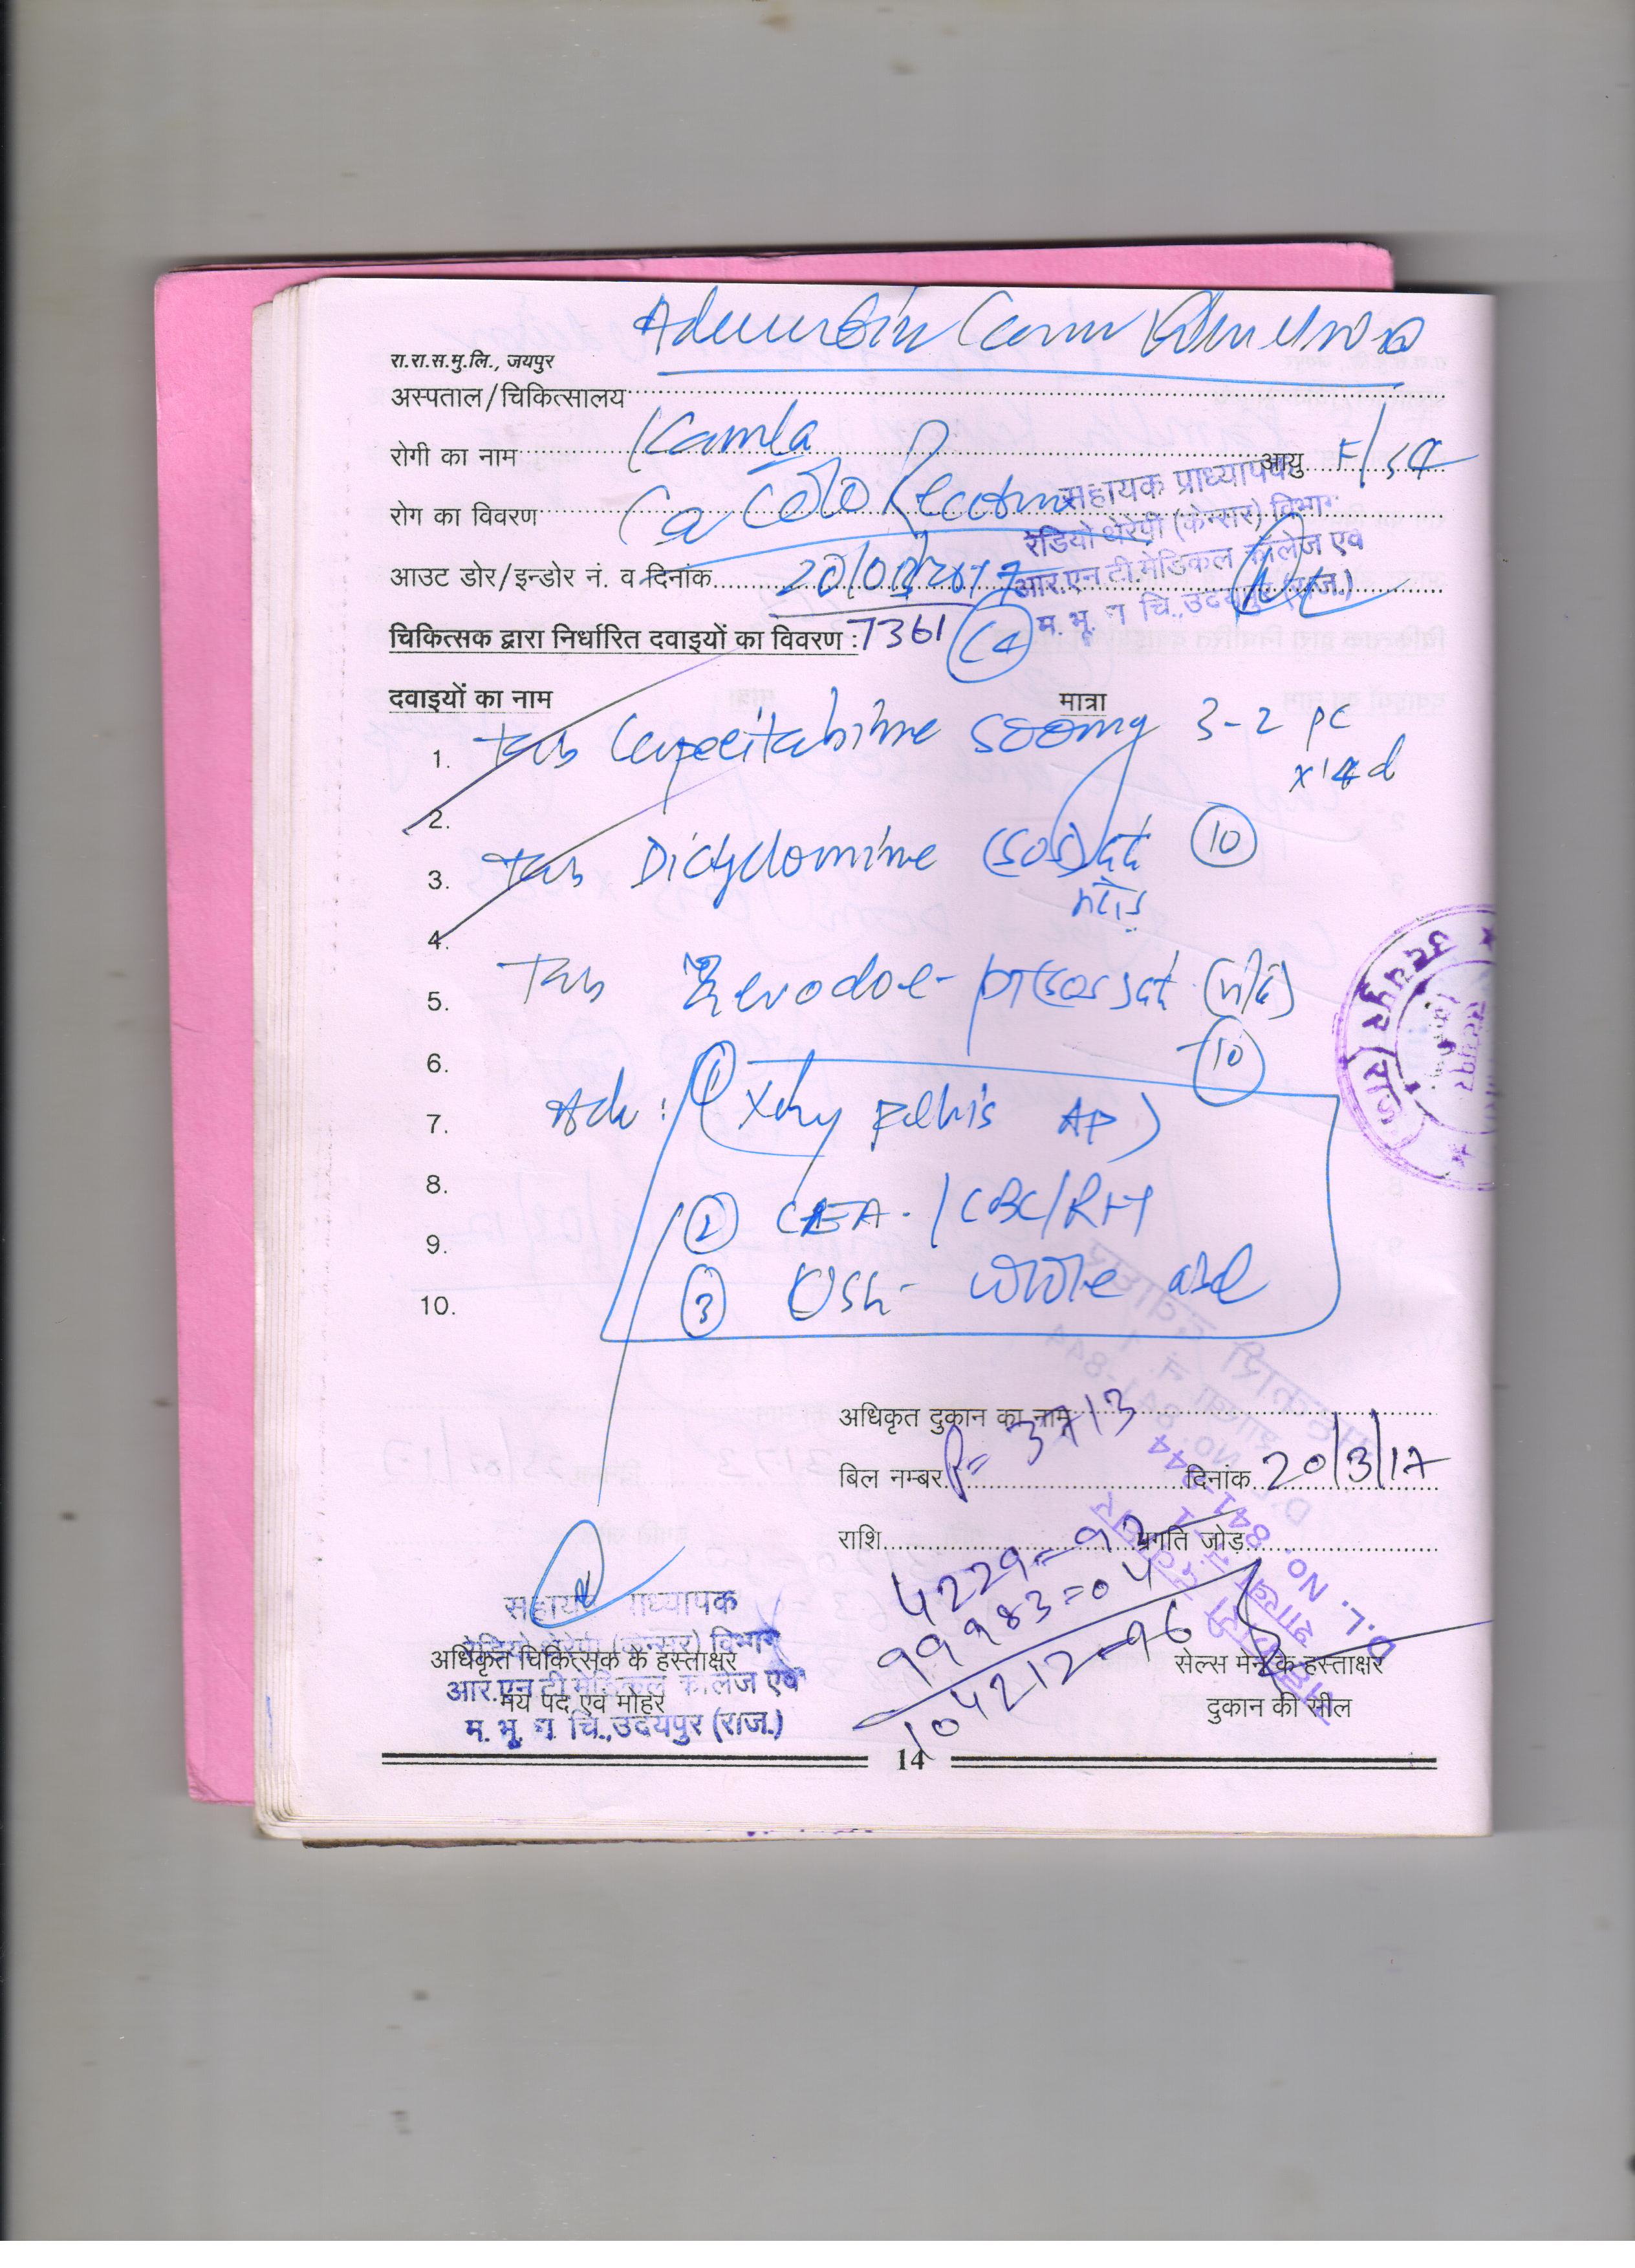 रा.रा.स.मु.लि., जयपुर
अस्पताल/चिकित्सालय
रोगी का नाम Kamla आयु F/54
रोग का विवरण Ca Colo Rectum
सहायक प्राध्यापक
रेडियो थेरेपी (केन्सर) विभाग
आर.एन.टी.मेडिकल कॉलेज एवं
म. भू. चि.,उदयपुर (राज.)
आउट डोर/इन्डोर नं. व दिनांक 20/03/2017
चिकित्सक द्वारा निर्धारित दवाइयों का विवरण : 7361
दवाइयों का नाम मात्रा
1. Tab Capecitabine 500mg 3-2 pc
x14d
2.
3. Tab Dicyclomine (SOS) दर्द 10
4.
5. Tab Zerodol-P (SOS) दर्द
6. 10
7. Adv: 1 Xray Pelvis AP
8.
2 CEA / CBC/RFT
9.
3 USG- whole abd
10.
अधिकृत दुकान का नाम
बिल नम्बर 3713 दिनांक 20/3/17
राशि 4229=92 प्रगति जोड़
99983=04
104212=96
सहायक प्राध्यापक
रेडियो थेरेपी (केन्सर) विभाग
अधिकृत चिकित्सक के हस्ताक्षर
आर.एन.टी.मेडिकल कालेज एवं
मय पद एवं मोहर
म. भू. चि.,उदयपुर (राज.)
सेल्स मेन के हस्ताक्षर
दुकान की सील
D.L. No. 841-844
उदयपुर (राज.)
14